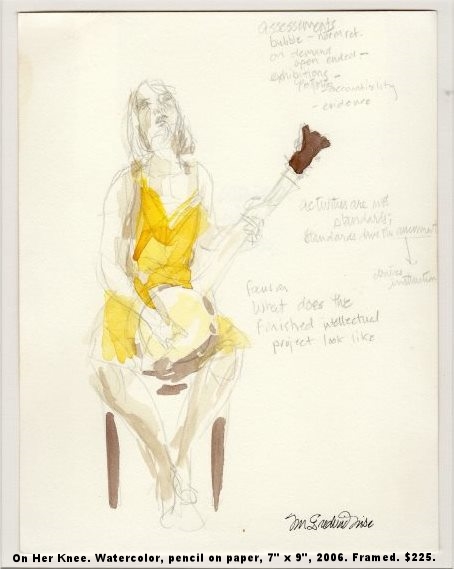 assessments
bubble - norm ref.
on demand
open ended -
exhibitions -
accountability
- evidence
activities are not
standards;
standards drive the assessment
drives
instruction
focus on
What does the
finished intellectual
project look like
On Her Knee. Watercolor, pencil on paper, 7" x 9", 2006. Framed. $225.